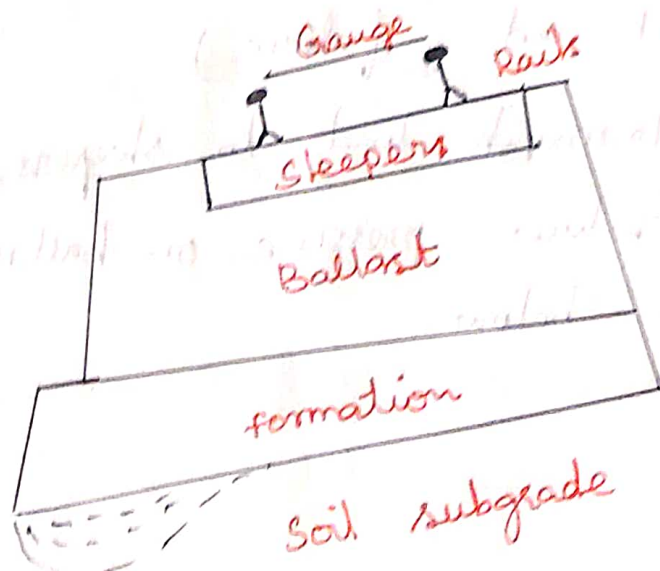 Gauge
Rails
Sleepers
Ballast
formation
Soil subgrade